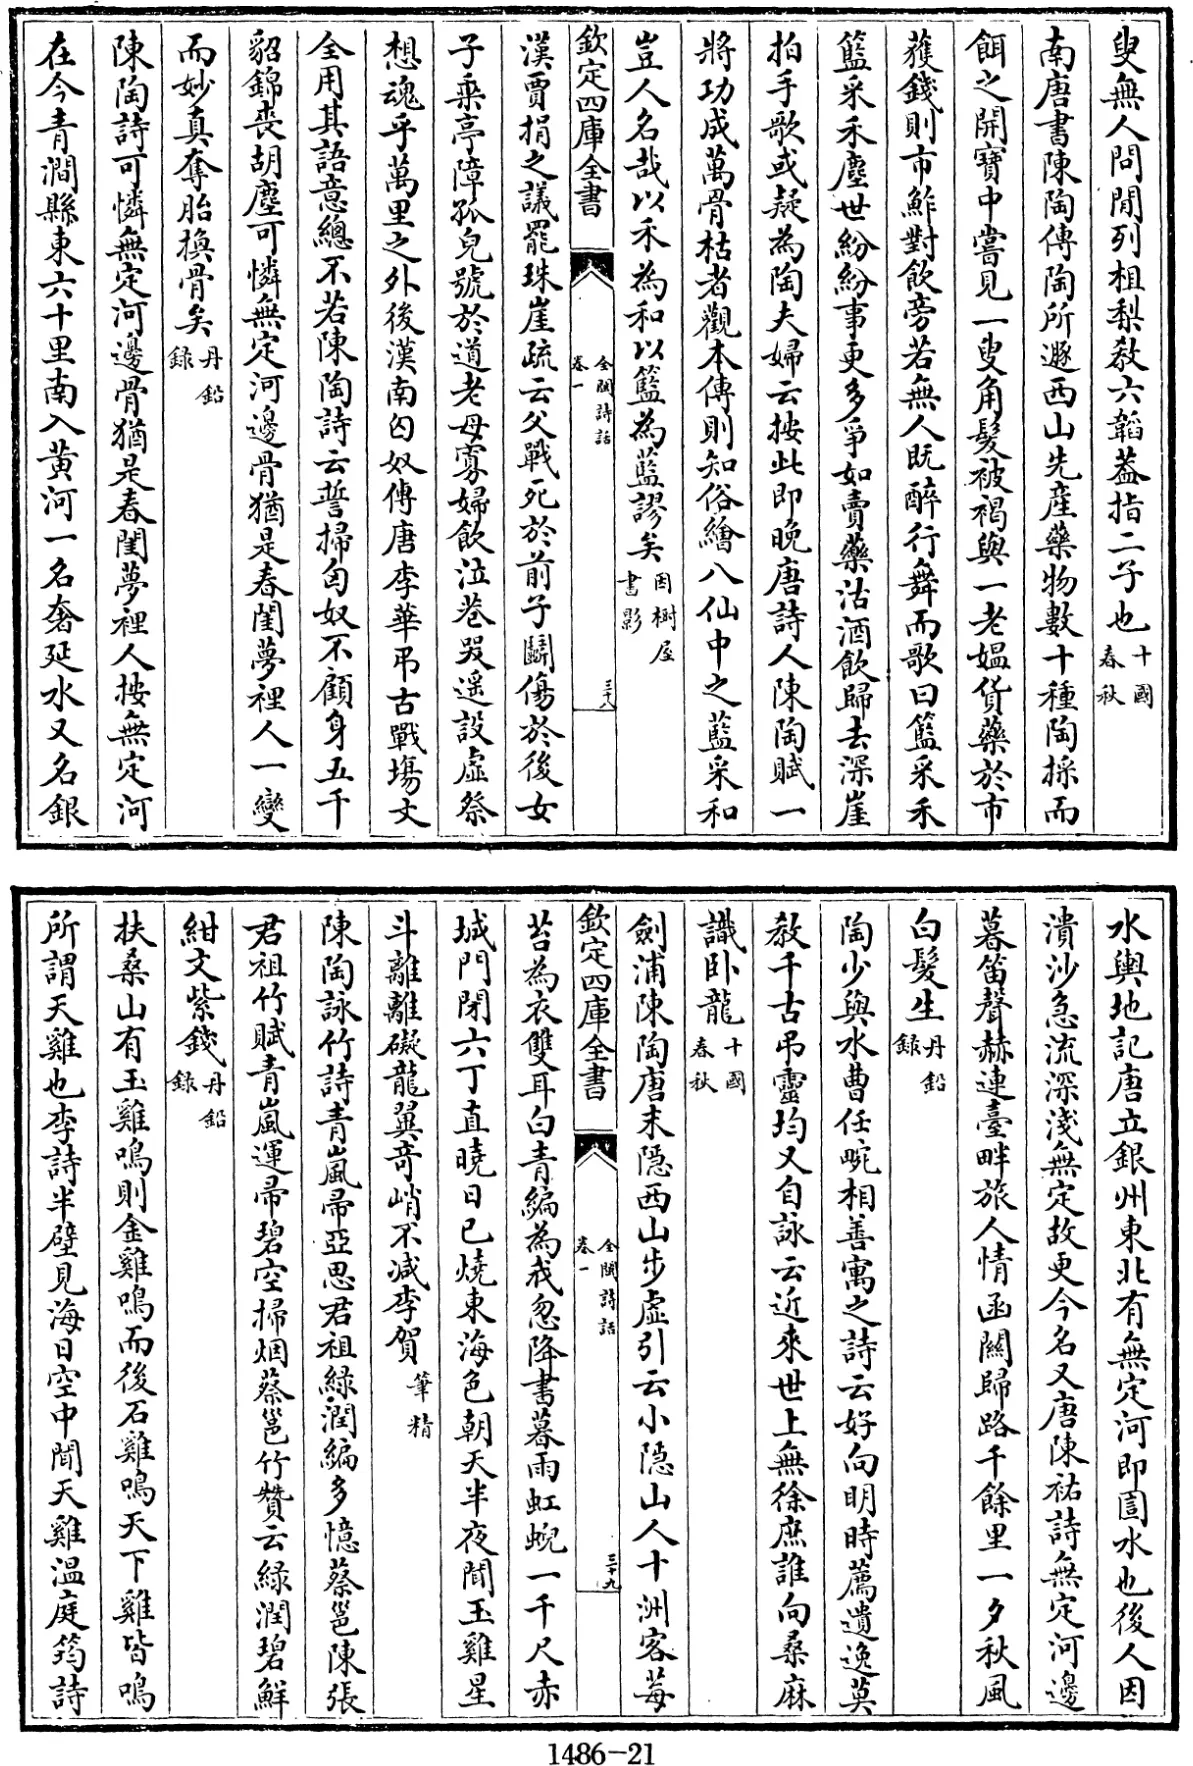 叟無人問閒列柤梨敎六韜葢指二子也十國春秋
南唐書陳陶傳陶所遯西山先產藥物數十種陶採而
餌之開寶中嘗見一叟角髮被褐與一老媼貨藥於市
獲錢則市鮓對飲旁若無人既醉行舞而歌曰籃采禾
籃采禾塵世紛紛事更多爭如賣藥沽酒飲歸去深崖
拍手歌或疑為陶夫婦云按此即晩唐詩人陳陶賦一
將功成萬骨枯者觀本傳則知俗繪八仙中之藍采和
豈人名哉以禾為和以籃為藍謬矣因樹屋書影
欽定四庫全書
全閩詩話
卷一
三十八
漢賈捐之議罷珠崖疏云父戰死於前子鬬傷於後女
子乘亭障孤兒號於道老母寡婦飲泣巷哭遥設虛祭
想魂乎萬里之外後漢南匈奴傳唐李華弔古戰塲文
全用其語意總不若陳陶詩云誓掃匈奴不顧身五千
貂錦喪胡塵可憐無定河邊骨猶是春閨夢裡人一變
而妙真奪胎換骨矣丹鉛錄
陳陶詩可憐無定河邊骨猶是春閨夢裡人按無定河
在今青澗縣東六十里南入黃河一名奢延水又名銀
水輿地記唐立銀州東北有無定河即圁水也後人因
潰沙急流深淺無定故更今名又唐陳祐詩無定河邊
暮笛聲赫連臺畔旅人情函關歸路千餘里一夕秋風
白髮生丹鉛錄
陶少與水曹任畹相善寓之詩云好向明時薦遺逸莫
敎千古弔靈均又自詠云近來世上無徐庶誰向桑麻
識卧龍十國春秋
劍浦陳陶唐末隱西山步虛引云小隱山人十洲客莓
欽定四庫全書
全閩詩話
卷一
三十九
苔為衣雙耳白青編為我忽降書暮雨虹蜺一千尺赤
城門閉六丁直曉日已燒東海色朝天半夜聞玉雞星
斗離離礙龍翼奇峭不減李賀筆精
陳陶詠竹詩青嵐帚亞思君祖綠潤編多憶蔡邕陳張
君祖竹賦青嵐運帚碧空掃烟蔡邕竹贊云綠潤碧鮮
紺文紫錢丹鉛錄
扶桑山有玉雞鳴則金雞鳴而後石雞鳴天下雞皆鳴
所謂天雞也李詩半壁見海日空中聞天雞溫庭筠詩
1486-21